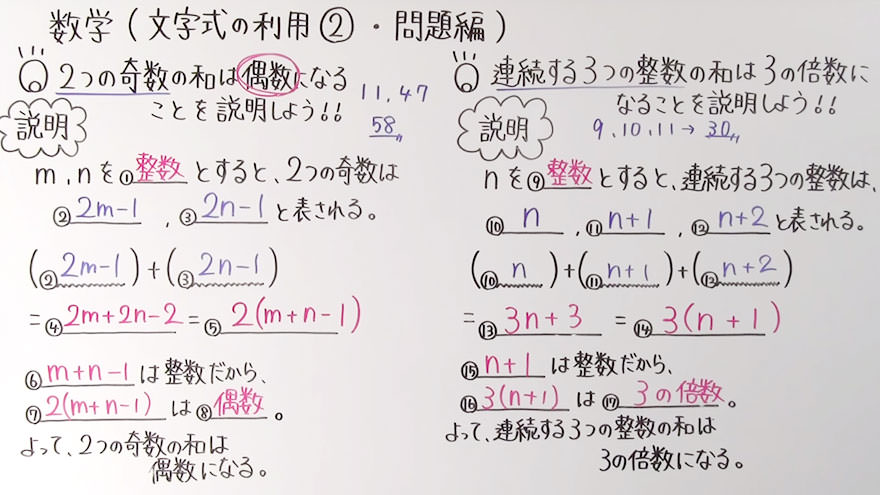 数学(文字式の利用②・問題編)
2つの奇数の和は偶数になる
ことを説明しよう!!
11,47
58
説明
m,nを①整数とすると、2つの奇数は
②2m-1,③2n-1と表される。
(②2m-1)+(③2n-1)
=④2m+2n-2=⑤2(m+n-1)
⑥m+n-1は整数だから、
⑦2(m+n-1)は⑧偶数。
よって、2つの奇数の和は
偶数になる。
連続する3つの整数の和は3の倍数に
なることを説明しよう!!
9,10,11→30
説明
nを⑨整数とすると、連続する3つの整数は、
⑩n,⑪n+1,⑫n+2と表される。
(⑩n)+(⑪n+1)+(⑫n+2)
=⑬3n+3=⑭3(n+1)
⑮n+1は整数だから、
⑯3(n+1)は⑰3の倍数。
よって、連続する3つの整数の和は
3の倍数になる。